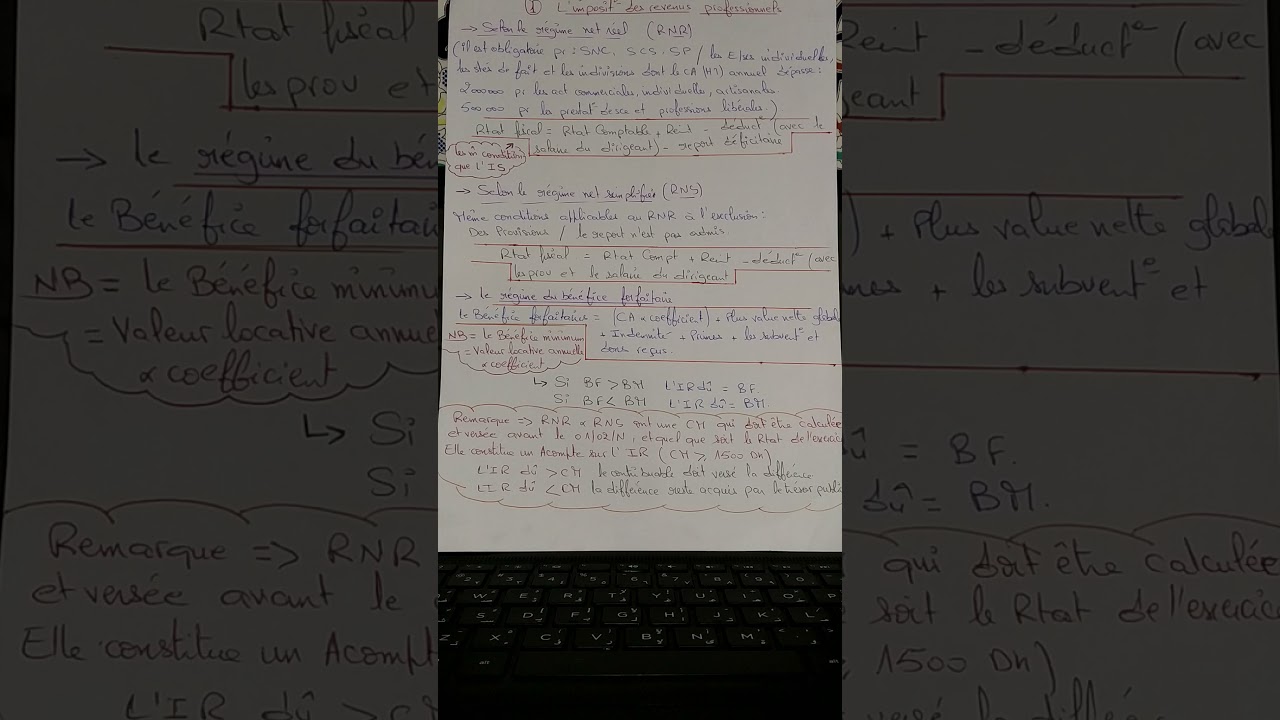 ① L'imposit° des revenus professionnels
→ Selon le régime net réel (RNR)
(il est obligatoire pr : SNC, SCS, SP / les E/ses individuelles,
les stés de fait et les indivisions dont le CA (HT) annuel dépasse :
2000000 pr les act commerciales, individuelles, artisanales.
500000 pr la prestat° desce et professions libérales.)
Rtat fiscal = Rtat Comptable + Reint - déduct° (avec le
salaire du dirigeant) - report déficitaire
les m̂ condition
que l'IS
→ Selon le régime net simplifié (RNS)
Même conditions applicables au RNR à l'exclusion :
Des Provisions / le report n'est pas admis.
Rtat fiscal = Rtat Compt + Reint - déduct° (avec
les prov et le salaire du dirigeant
→ le régime du bénéfice forfaitaire
le Bénéfice forfaitaire = (CA × coefficient) + Plus value nette globale
+ Indemnité + Primes + les subvent° et
dons reçus.
NB = le Bénéfice minimum
= Valeur locative annuelle
× coefficient
↳ Si BF > BM L'IR dû = BF.
Si BF < BM L'IR dû = BM.
Remarque => RNR × RNS ont une CM qui doit être calculée
et versée avant le 01/02/N, et quel que soit le Rtat de l'exercic
Elle constitue un Acompte sur l'IR (CM ⩾ 1500 Dh)
L'IR dû > CM le contribuable doit versé la différence
L'IR dû < CM la différence reste acquis par le trésor publi